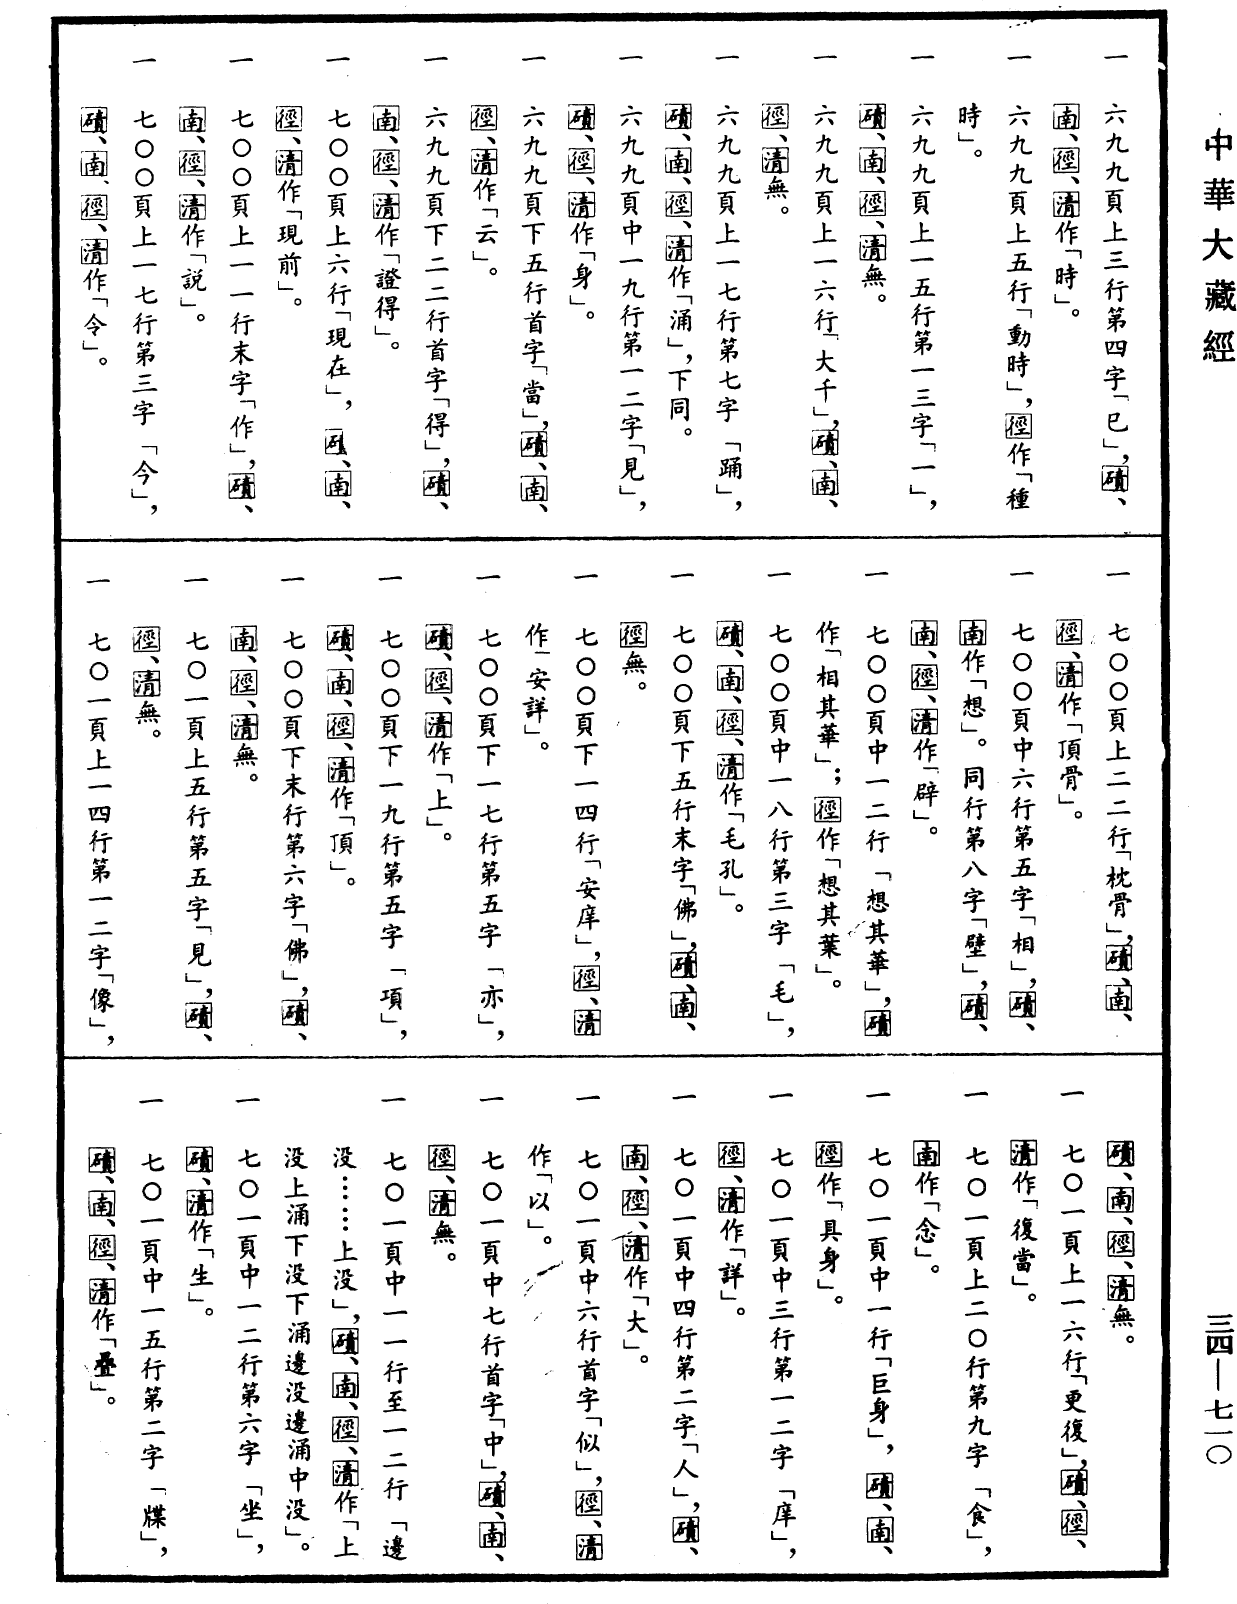 中華大藏經
一　六九九頁上三行第四字「已」，磧、
南、徑、清作「時」。
一　六九九頁上五行「動時」，徑作「種
時」。
一　六九九頁上一五行第一三字「一」，
磧、南、徑、清無。
一　六九九頁上一六行「大千」，磧、南、
徑、清無。
一　六九九頁上一七行第七字「踊」，
磧、南、徑、清作「涌」，下同。
一　六九九頁中一九行第一二字「見」，
磧、徑、清作「身」。
一　六九九頁下五行首字「當」，磧、南、
徑、清作「云」。
一　六九九頁下二二行首字「得」，磧、
南、徑、清作「證得」。
一　七〇〇頁上六行「現在」，磧、南、
徑、清作「現前」。
一　七〇〇頁上一一行末字「作」，磧、
南、徑、清作「説」。
一　七〇〇頁上一七行第三字「今」，
磧、南、徑、清作「令」。
一　七〇〇頁上二二行「枕骨」，磧、南、
徑、清作「頂骨」。
一　七〇〇頁中六行第五字「相」，磧、
南作「想」。同行第八字「壁」，磧、
南、徑、清作「辟」。
一　七〇〇頁中一二行「想其華」，磧
作「相其華」；徑作「想其葉」。
一　七〇〇頁中一八行第三字「毛」，
磧、南、徑、清作「毛孔」。
一　七〇〇頁下五行末字「佛」，磧、南、
徑無。
一　七〇〇頁下一四行「安庠」，徑、清
作「安詳」。
一　七〇〇頁下一七行第五字「亦」，
磧、徑、清作「上」。
一　七〇〇頁下一九行第五字「項」，
磧、南、徑、清作「頂」。
一　七〇〇頁下末行第六字「佛」，磧、
南、徑、清無。
一　七〇一頁上五行第五字「見」，磧、
徑、清無。
一　七〇一頁上一四行第一二字「像」，
磧、南、徑、清無。
一　七〇一頁上一六行「更復」，磧、徑、
清作「復當」。
一　七〇一頁上二〇行第九字「食」，
南作「念」。
一　七〇一頁中一行「巨身」，磧、南、
徑作「具身」。
一　七〇一頁中三行第一二字「庠」，
徑、清作「詳」。
一　七〇一頁中四行第二字「人」，磧、
南、徑、清作「大」。
一　七〇一頁中六行首字「似」，徑、清
作「以」。
一　七〇一頁中七行首字「中」，磧、南、
徑、清無。
一　七〇一頁中一一行至一二行「邊
没……上没」，磧、南、徑、清作「上
没上涌下没下涌邊没邊涌中没」。
一　七〇一頁中一二行第六字「坐」，
磧、清作「生」。
一　七〇一頁中一五行第二字「牒」，
磧、南、徑、清作「疊」。
三四—七一〇